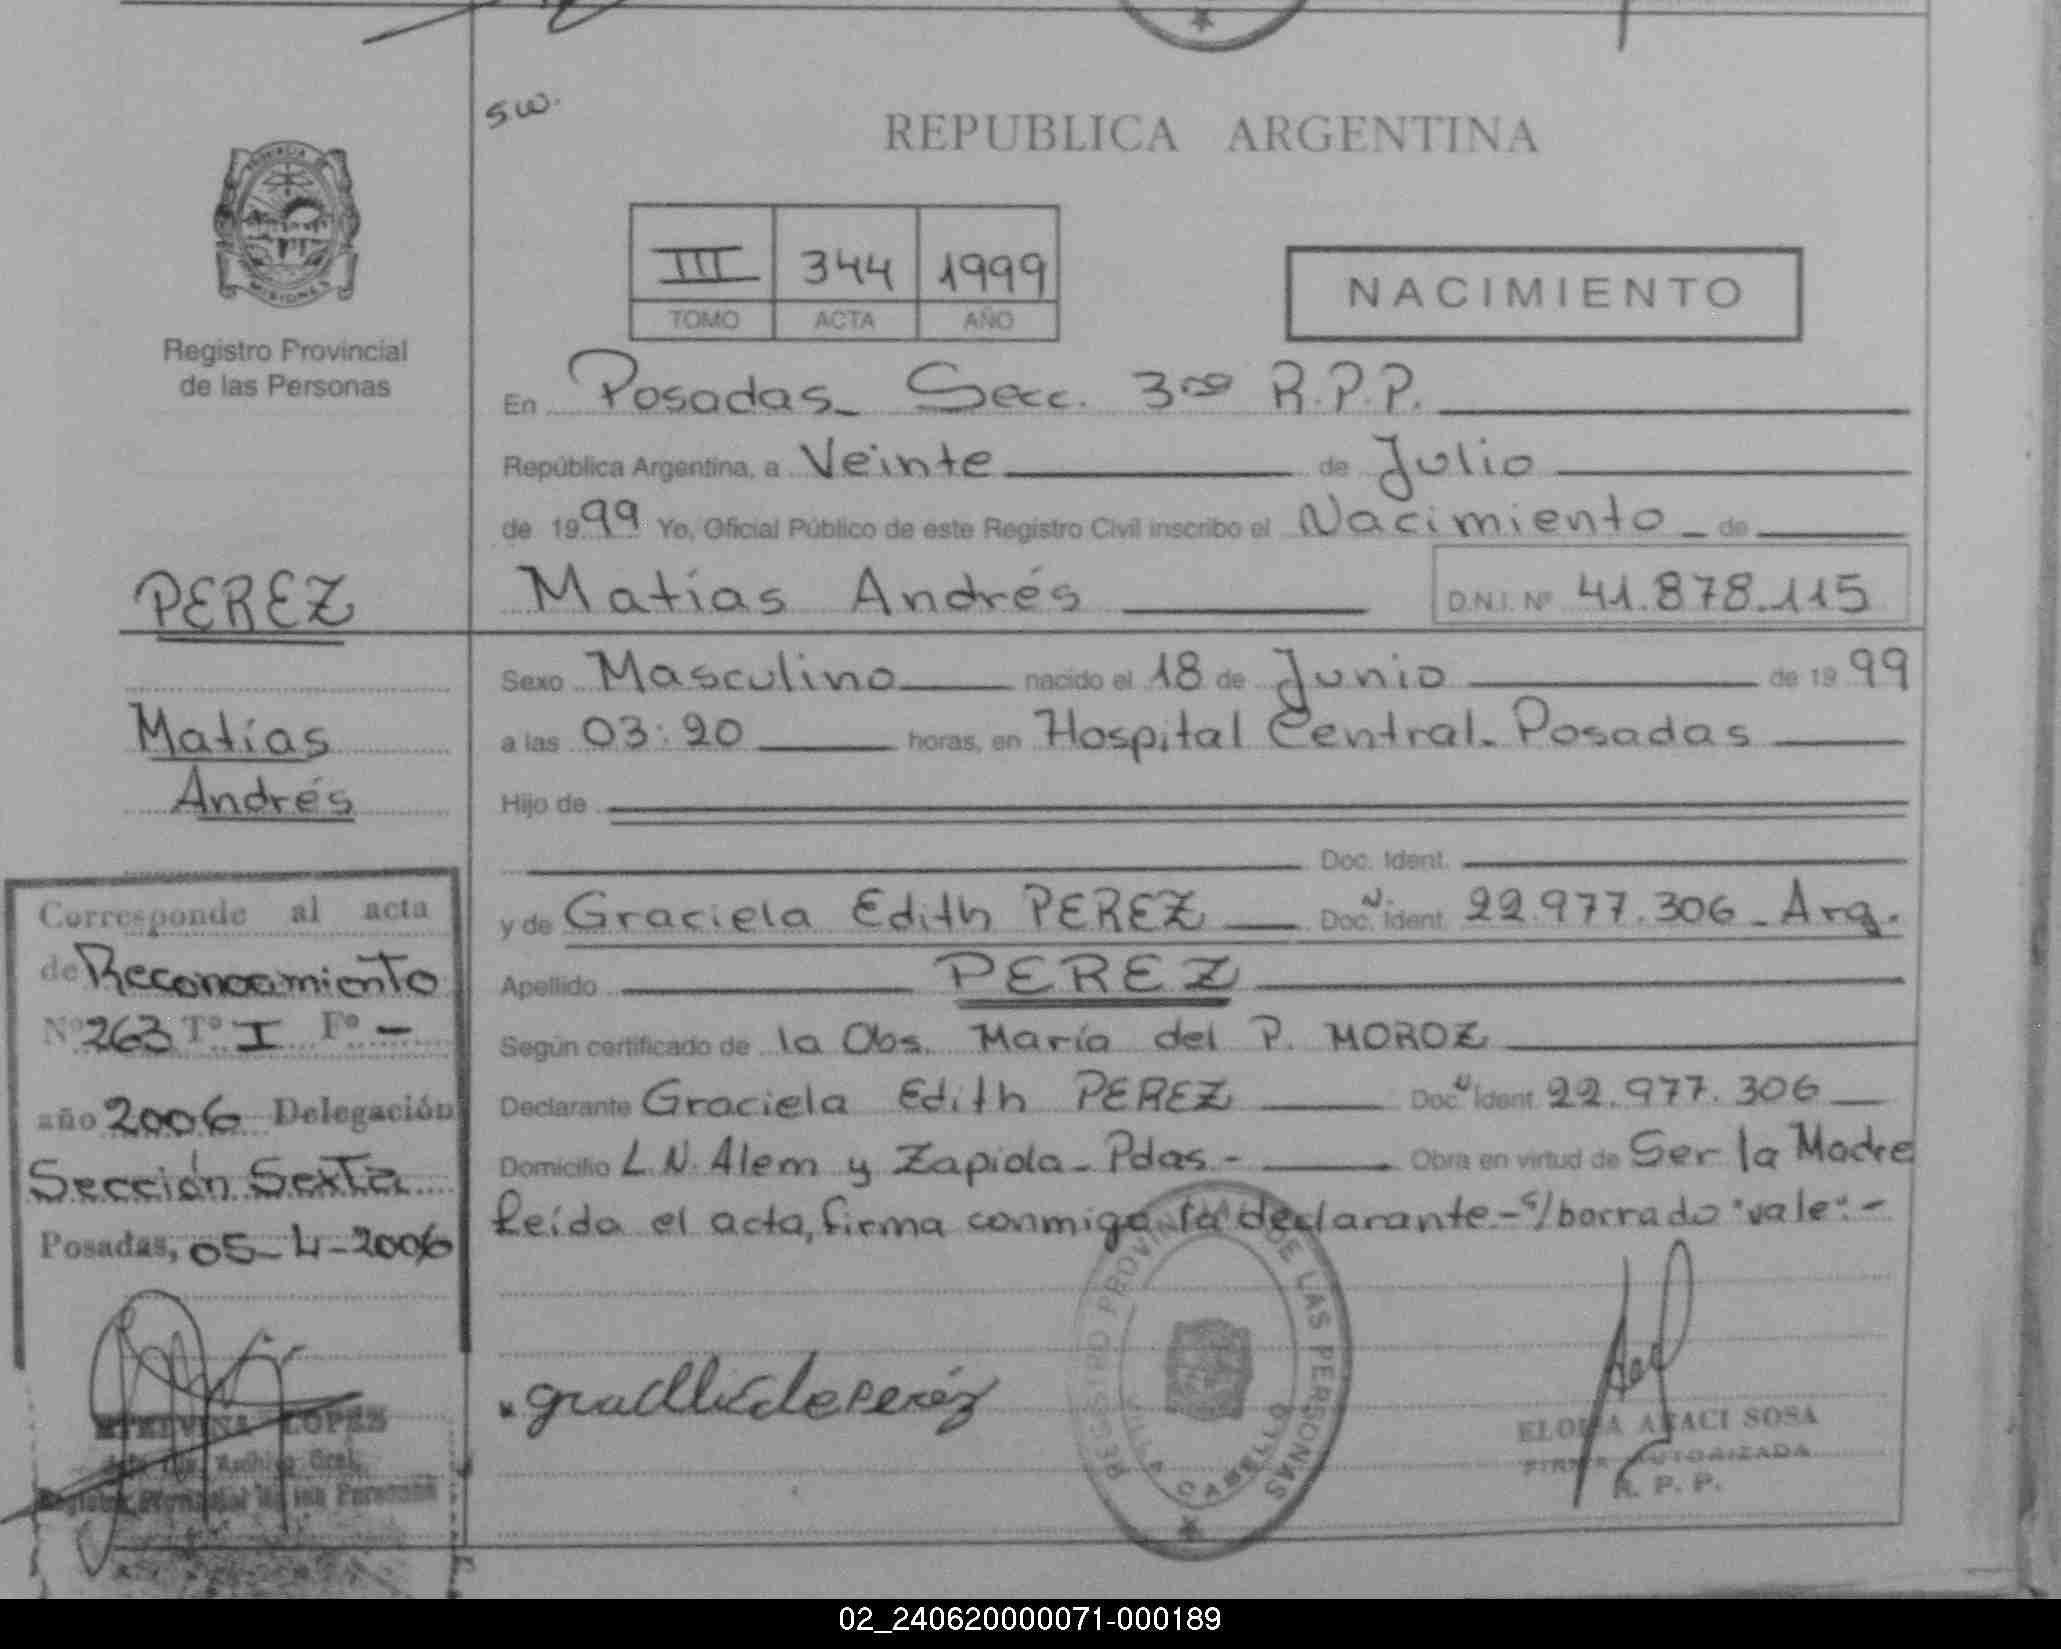 s.w.
REPUBLICA ARGENTINA
PROVINCIA DE
MISIONES
Registro Provincial
de las Personas
III 344 1999
TOMO ACTA AÑO
NACIMIENTO
En Posadas_ Secc. 3ra R.P.P.
República Argentina, a Veinte de Julio
de 1999 Yo, Oficial Público de este Registro Civil inscribo el Nacimiento _ de
PEREZ
Matías Andrés D.N.I. Nº 41.878.115
Sexo Masculino nacido el 18 de Junio de 1999
Matías
a las 03:20 horas, en Hospital Central. Posadas
Andrés
Hijo de
Doc. Ident.
y de Graciela Edith PEREZ Doc. N. Ident. 22.977.306 _ Arg.
Apellido PEREZ
Según certificado de la Obs. María del P. MOROZ
Declarante Graciela Edith PEREZ Doc. N Ident. 22.977.306
Domicilio L.N. Alem y Zapiola_ Pdas - Obra en virtud de Ser la Madre
Leída el acta, firma conmigo la declarante.- s/borrado "vale".-
Corresponde al acta
de Reconocimiento
Nº 263 Tº I Fº -
año 2006 Delegación
Sección Sexta
Posadas, 05-4-2006
LOPEZ
Archivo Gral.
Registro Provincial de las Personas
REGISTRO PROVINCIAL DE LAS PERSONAS
VILLA CABELLO
ELOISA ARACI SOSA
FIRMA AUTORIZADA
R. P. P.
02_240620000071-000189